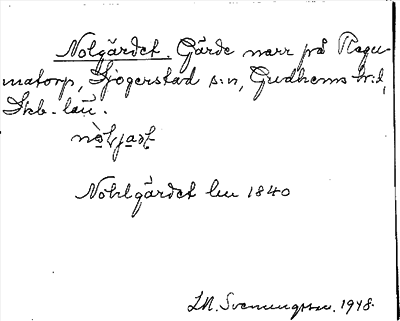 Nolgärdet. Gärde norr på Ragn-
matorp, Sjogerstad s:n, Gudhems hd,
Skb. län.
Nohlgärdet lm 1840
LN. Svenungsson. 1948.